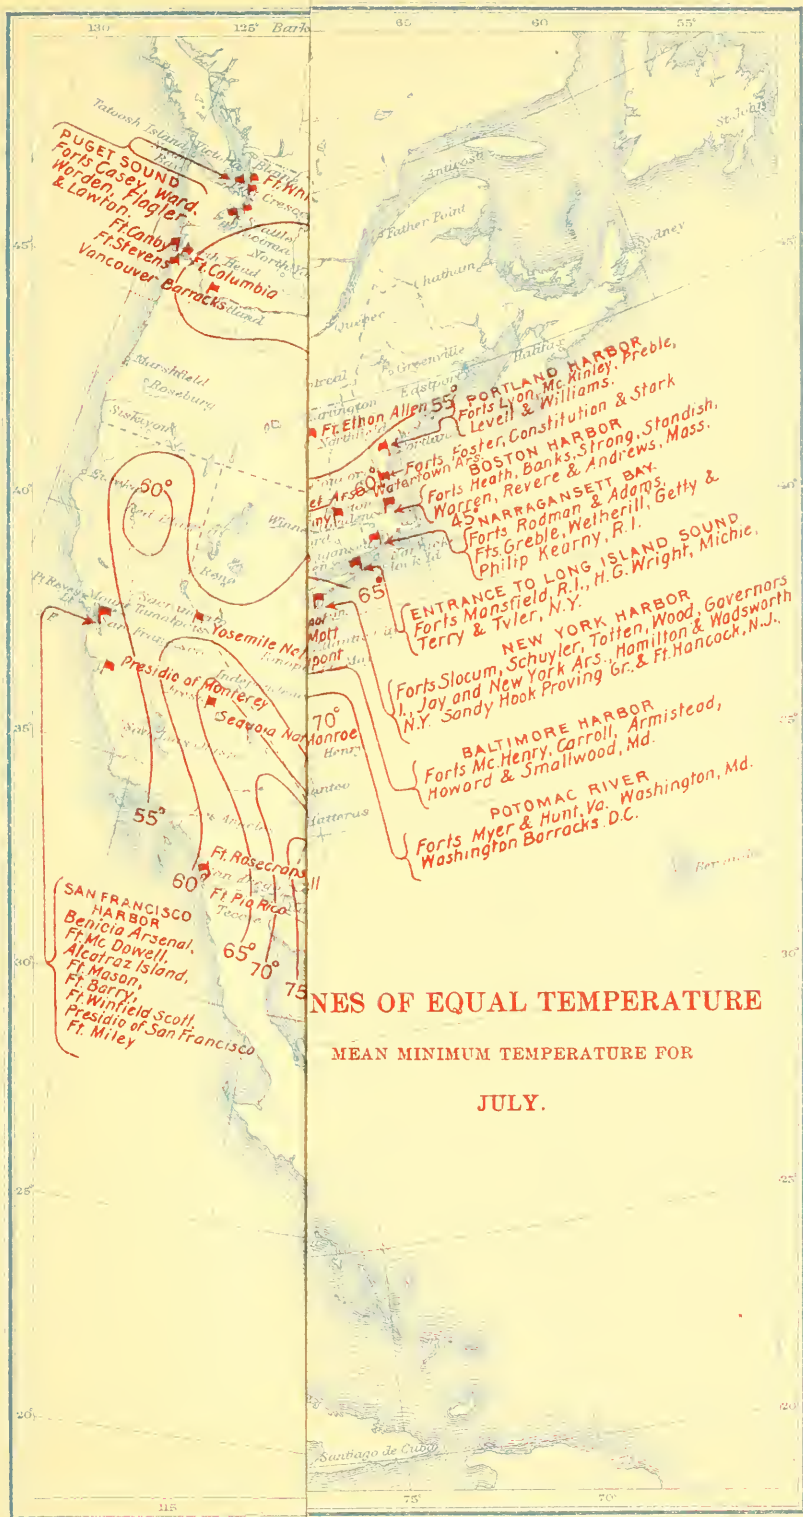 130°
125°
65
60
55°
Tatoosh Island
Victoria
PUGET SOUND
Forts Casey, Ward,
Worden, Flagler
& Lawton.
Ft. Whi
Seattle
Tacoma
Ft. Canby
Ft. Stevens
Ft. Columbia
Vancouver Barracks
Marshfield
Roseburg
Siskiyou
60°
Winne
Reno
Sacramento
Pt Reyes
Tamalpais
San Francisco
Yosemite Na
Presidio of Monterey
Sequoia Na
55°
Los Angeles
Ft. Rosecrans
San Diego
60°
Ft. Pio Rico
65°
70°
75
SAN FRANCISCO
HARBOR
Benicia Arsenal,
Ft. Mc Dowell,
Alcatraz Island,
Ft. Mason,
Ft. Barry,
Ft. Winfield Scott,
Presidio of San Francisco
Ft. Miley
45°
40°
35°
30°
25°
20°
115
St. Johns
Anticosti
Father Point
Sydney
Chatham
Quebec
Greenville
Halifax
Eastport
Northfield
55°
Ft. Ethan Allen
PORTLAND HARBOR
Forts Lyon, Mc. Kinley, Preble,
Levett & Williams.
60°
Forts Foster, Constitution & Stark
Watertown Ars.
BOSTON HARBOR
Forts Heath, Banks, Strong, Standish,
Warren, Revere & Andrews, Mass.
45°
NARRAGANSETT BAY.
Forts Rodman & Adams,
Fts. Greble, Wetherill, Getty &
Philip Kearny, R.I.
65°
ENTRANCE TO LONG ISLAND SOUND
Forts Mansfield, R.I., H.G. Wright, Michie,
Terry & Tyler, N.Y.
NEW YORK HARBOR
Forts Slocum, Schuyler, Totten, Wood, Governors
I., Jay and New York Ars., Hamilton & Wadsworth
N.Y. Sandy Hook Proving Gr. & Ft. Hancock, N.J.
Mott
pont
70°
Monroe
Henry
Hatteras
BALTIMORE HARBOR
Forts Mc. Henry, Carroll, Armistead,
Howard & Smallwood, Md.
POTOMAC RIVER
Forts Myer & Hunt, Va. Washington, Md.
Washington Barracks D.C.
NES OF EQUAL TEMPERATURE
MEAN MINIMUM TEMPERATURE FOR
JULY.
30°
25°
20
Santiago de Cuba
75°
70°